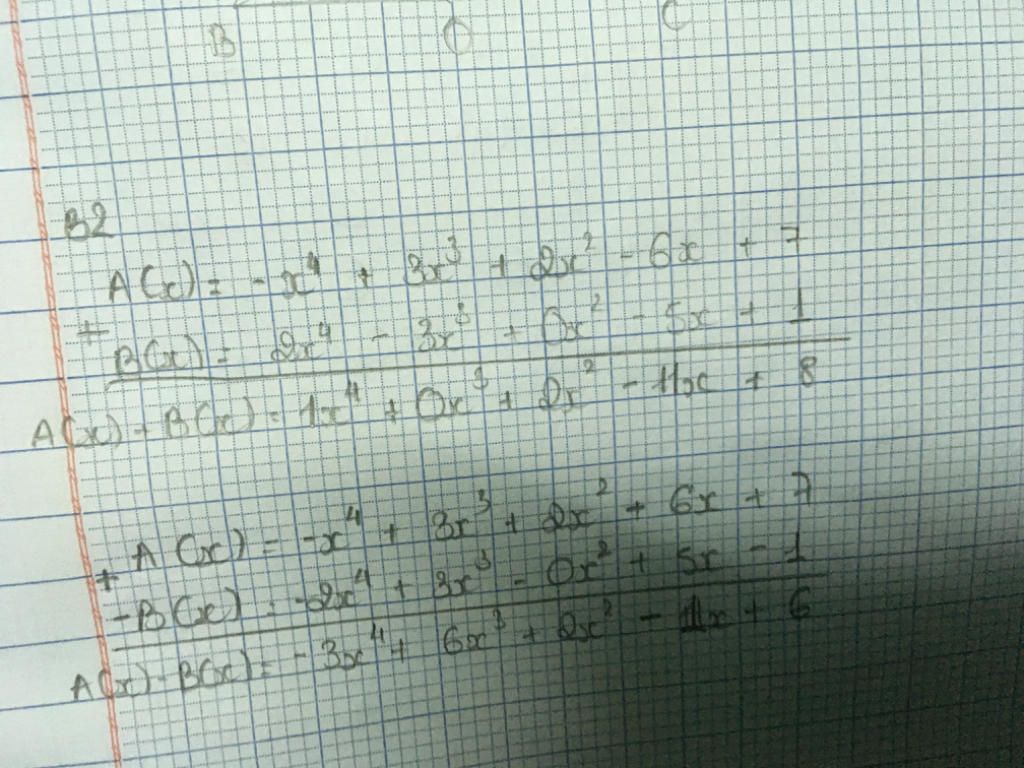 B O C
B2
A(x) = -x⁴ + 3x³ + 2x² - 6x + 7
+
B(x) = 2x⁴ - 3x³ + 0x² - 5x + 1
A(x) + B(x) = 1x⁴ + 0x³ + 2x² - 11x + 8
A(x) = -x⁴ + 3x³ + 2x² + 6x + 7
+
-B(x) = -2x⁴ + 3x³ - 0x² + 5x - 1
A(x) - B(x) = -3x⁴ + 6x³ + 2x² - 1x + 6